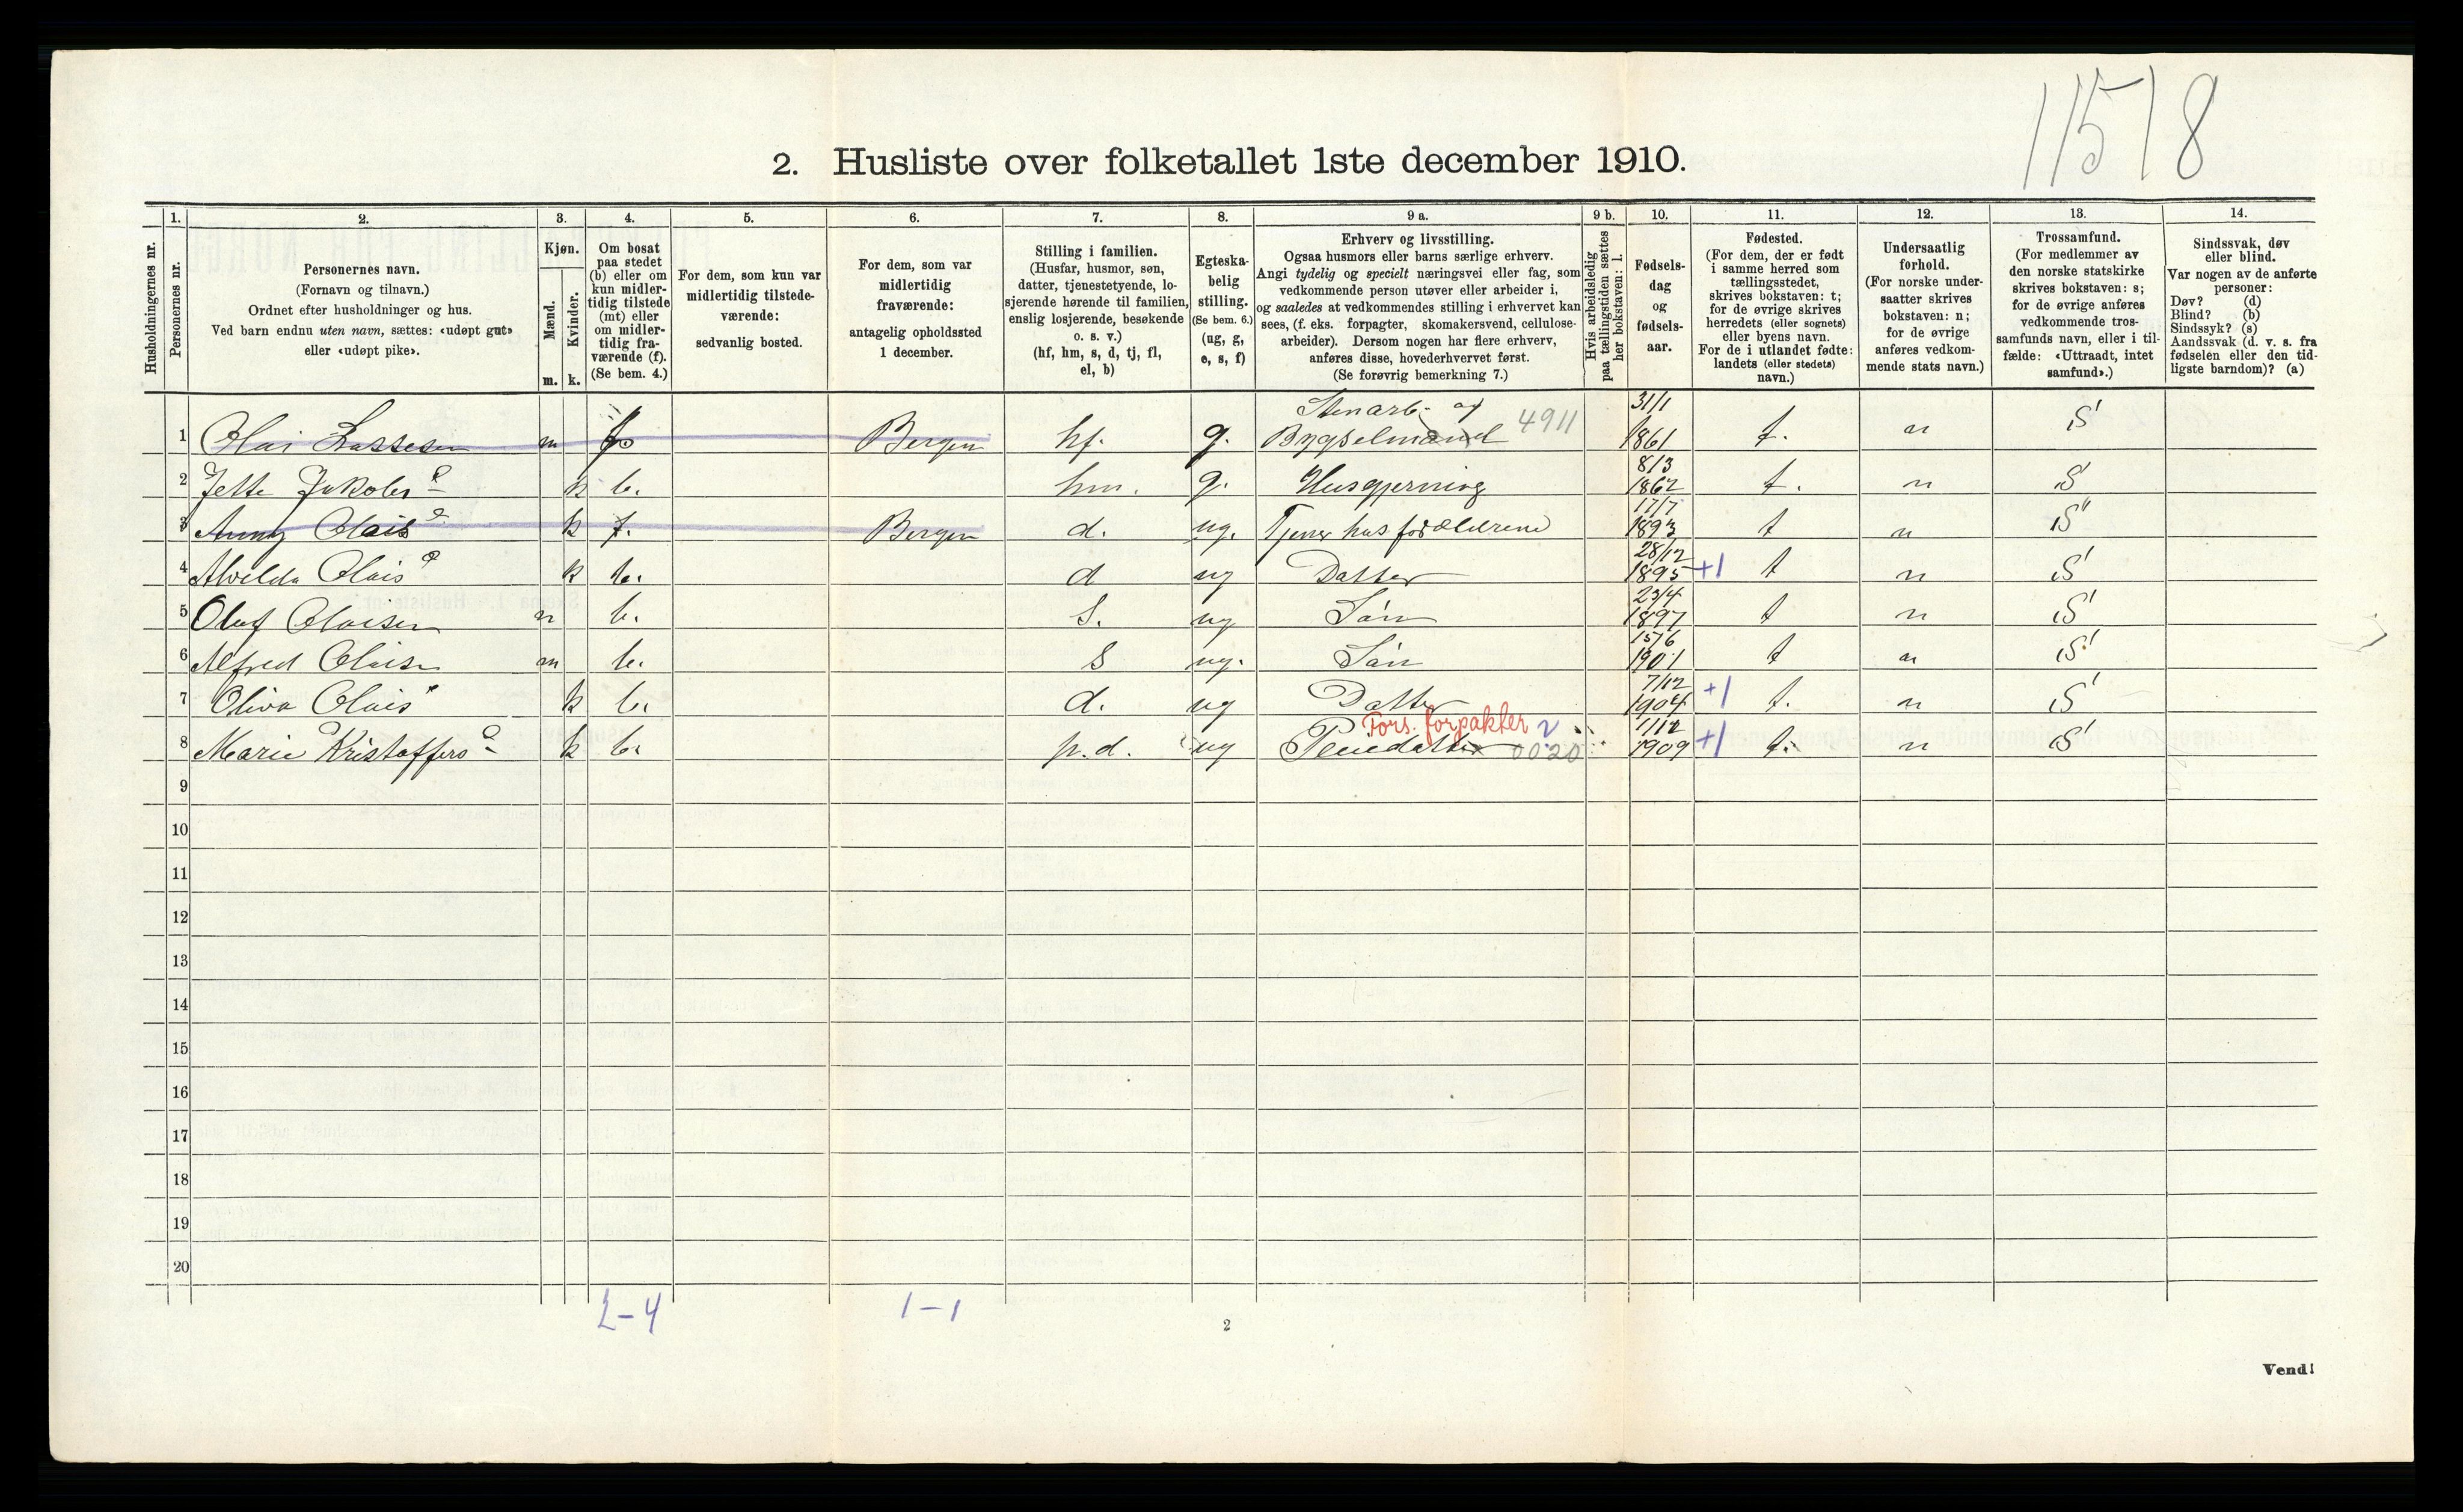 11518
2. Husliste over folketallet 1ste december 1910.
1. 2. 3. 4. 5. 6. 7. 8. 9 a. 9 b. 10. 11. 12. 13. 14.
Husholdningernes nr.
Personernes nr.
Personernes navn.
(Fornavn og tilnavn.)
Ordnet efter husholdninger og hus.
Ved barn endnu uten navn, sættes: «udøpt gut»
eller «udøpt pike».
Kjøn.
Mænd.
Kvinder.
m. k.
Om bosat
paa stedet
(b) eller om
kun midler-
tidig tilstede
(mt) eller
om midler-
tidig fra-
værende (f).
(Se bem. 4.)
For dem, som kun var
midlertidig tilstede-
værende:
sedvanlig bosted.
For dem, som var
midlertidig
fraværende:
antagelig opholdssted
1 december.
Stilling i familien.
(Husfar, husmor, søn,
datter, tjenestetyende, lo-
sjerende hørende til familien,
enslig losjerende, besøkende
o. s. v.)
(hf, hm, s, d, tj, fl,
el, b)
Egteska-
belig
stilling.
(Se bem. 6.)
(ug, g,
e, s, f)
Erhverv og livsstilling.
Ogsaa husmors eller barns særlige erhverv.
Angi tydelig og specielt næringsvei eller fag, som
vedkommende person utøver eller arbeider i,
og saaledes at vedkommendes stilling i erhvervet kan
sees, (f. eks. forpagter, skomakersvend, cellulose-
arbeider). Dersom nogen har flere erhverv,
anføres disse, hovederhvervet først.
(Se forøvrig bemerkning 7.)
Hvis arbeidsledig
paa tællingstiden sættes
her bokstaven: l.
Fødsels-
dag
og
fødsels-
aar.
Fødested.
(For dem, der er født
i samme herred som
tællingsstedet,
skrives bokstaven: t;
for de øvrige skrives
herredets (eller sognets)
eller byens navn.
For de i utlandet fødte:
landets (eller stedets)
navn.)
Undersaatlig
forhold.
(For norske under-
saatter skrives
bokstaven: n;
for de øvrige
anføres vedkom-
mende stats navn.)
Trossamfund.
(For medlemmer av
den norske statskirke
skrives bokstaven: s;
for de øvrige anføres
vedkommende tros-
samfunds navn, eller i til-
fælde: «Uttraadt, intet
samfund».)
Sindssvak, døv
eller blind.
Var nogen av de anførte
personer:
Døv? (d)
Blind? (b)
Sindssyk? (s)
Aandssvak (d. v. s. fra
fødselen eller den tid-
ligste barndom)? (a)
Stenarb. og 31/1
1 Olai Lassesen m f Bergen hf. g. Bygselmand 4911 1861 t. n S
8/3
2 Jette Jakobs d k b. hm. g. Husgjerning 1862 t. n S
17/7
3 Anny Olais d k f. Bergen d. ug. Tjener hos forældrene 1893 t n S
28/12
4 Alvelda Olais d k b. d ug Datter 1895 +1 t n S
23/4
5 Oluf Olaisen m b. S. ug Søn 1897 t n S
15/6
6 Alfred Olaisn m b. S ug. Søn 1901 t n S
7/12
7 Oliva Olais d k b. d. ug Datter 1904 +1 t. n S
Fors. forpakter 2 1/12
8 Marie Kristoffers d k b. p.d. ug Pleiedatter 0020 1909 +1 t. n S
9
10
11
12
13
14
15
16
17
18
19
20
2-4 1-1
2
Vend!